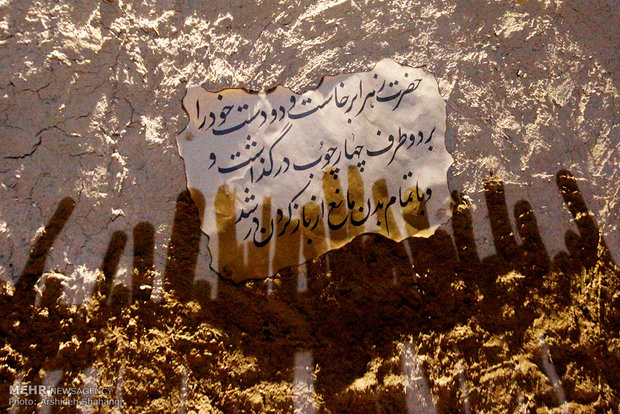 حضرت زهرا برخاست و دو دست خود را
بر دو طرف چهارچوب در گذاشت و
و با تمام بدن مانع از باز کردن در شد
MEHR NEWS AGENCY
Photo: Arshideh Shahangi